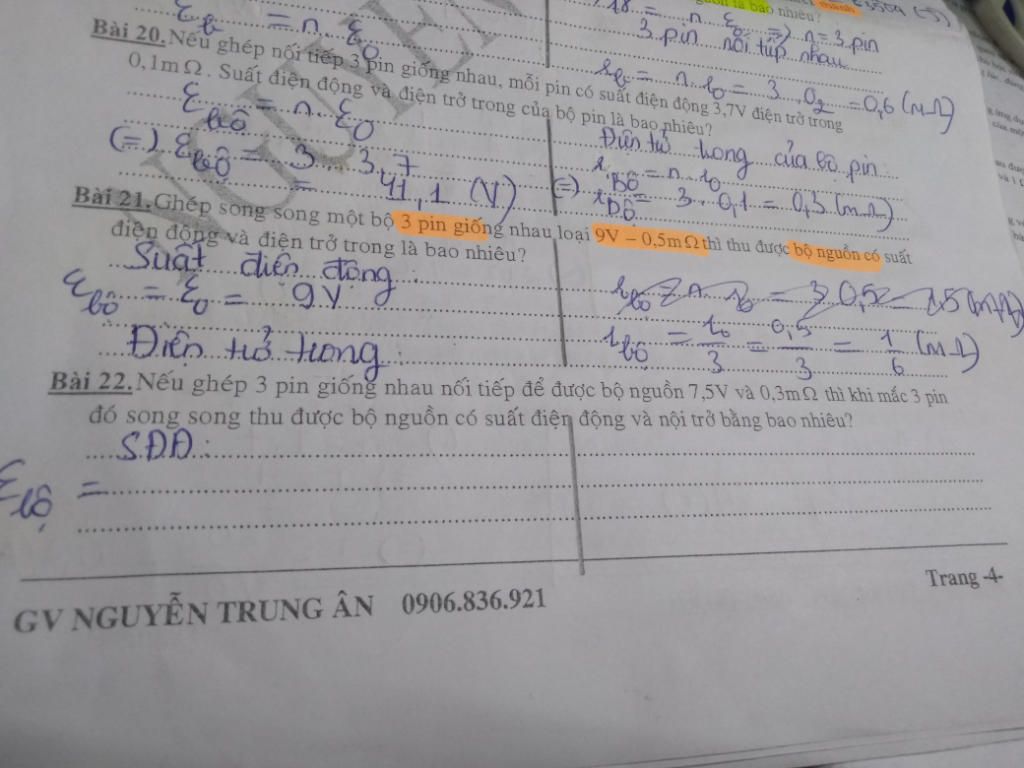 ε_b = n . ε_0
18 = n . ε_0 => n = 3 pin
là bao nhiêu?
3 pin nối tiếp nhau
r_b = n . r_0 = 3 . 0,2 = 0,6 (mΩ)
Bài 20. Nếu ghép nối tiếp 3 pin giống nhau, mỗi pin có suất điện động 3,7V điện trở trong
0,1mΩ. Suất điện động và điện trở trong của bộ pin là bao nhiêu?
ε_bộ = n . ε_0
(=) ε_bộ = 3 . 3,7
= 11,1 (V)
Điện trở trong của bộ pin:
r_Bộ = n . r_0
(=) r_Bộ = 3 . 0,1 = 0,3 (mΩ)
Bài 21. Ghép song song một bộ 3 pin giống nhau loại 9V – 0,5mΩ thì thu được bộ nguồn có suất
điện động và điện trở trong là bao nhiêu?
Suất điện động:
ε_bộ = ε_0 = 9V
Điện trở trong:
r_bộ = r_0/3 = 0,5/3 = 1/6 (mΩ)
Bài 22. Nếu ghép 3 pin giống nhau nối tiếp để được bộ nguồn 7,5V và 0,3mΩ thì khi mắc 3 pin
đó song song thu được bộ nguồn có suất điện động và nội trở bằng bao nhiêu?
SĐĐ:
ε_bộ =
Trang -4-
GV NGUYỄN TRUNG ÂN 0906.836.921
NGUYỄN